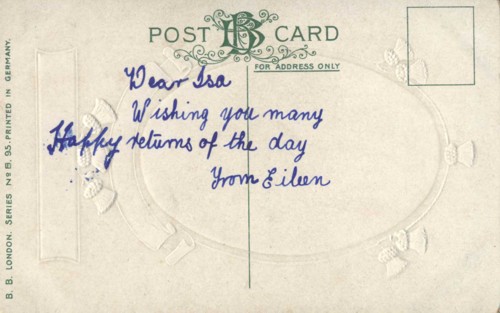 POST BB CARD
FOR ADDRESS ONLY
Dear Isa
Wishing you many
Happy returns of the day
From Eileen
B. B. LONDON. SERIES No E. 95. PRINTED IN GERMANY.